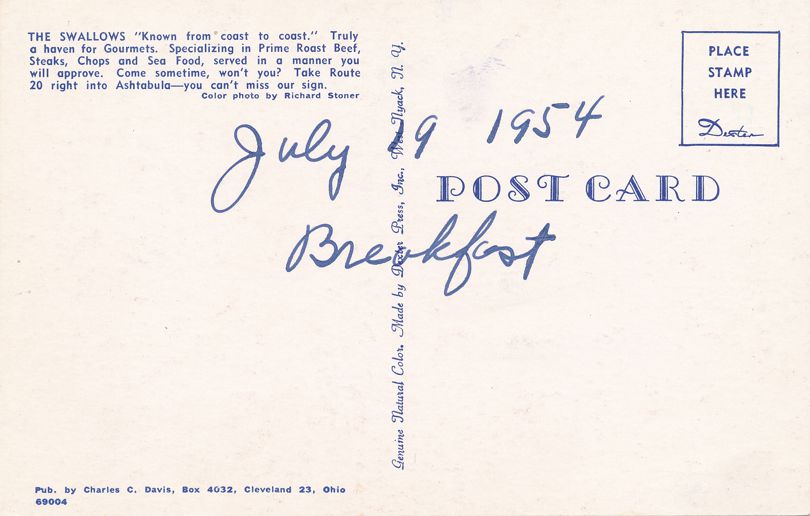 THE SWALLOWS "Known from coast to coast." Truly
a haven for Gourmets. Specializing in Prime Roast Beef,
Steaks, Chops and Sea Food, served in a manner you
will approve. Come sometime, won't you? Take Route
20 right into Ashtabula—you can't miss our sign.
Color photo by Richard Stoner
PLACE
STAMP
HERE
Dexter
July 9 1954
POST CARD
Breakfast
Genuine Natural Color. Made by Dexter Press, Inc., West Nyack, N. Y.
Pub. by Charles C. Davis, Box 4032, Cleveland 23, Ohio
69004